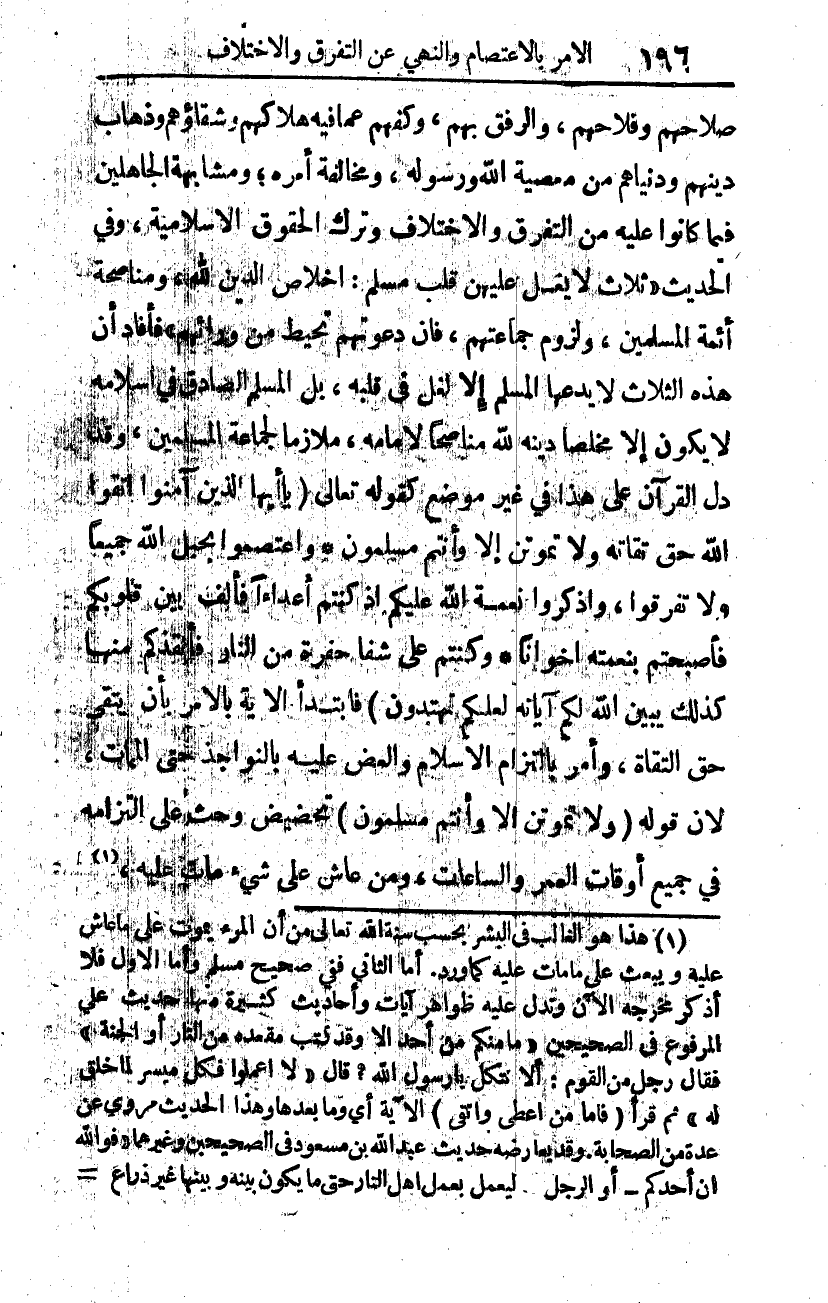 ١٩٦ الامر بالاعتصام والنهي عن التفرق والاختلاف
صلاحهم وفلاحهم ، والرفق بهم ، وكفهم عما فيه هلاكهم وشقاؤهم وذهاب
دينهم ودنياهم من معصية الله ورسوله ، ومخالفة أمره ، ومشابهة الجاهلين
فيما كانوا عليه من التفرق والاختلاف وترك الحقوق الاسلامية ، وفي
الحديث « ثلاث لا يغل عليهن قلب مسلم : اخلاص الدين لله ، ومناصحة
أئمة المسلمين ، ولزوم جماعتهم ، فان دعوتهم تحيط من ورائهم » فأفاد أن
هذه الثلاث لا يدعها المسلم إلا لغل في قلبه ، بل المسلم الصادق في اسلامه
لا يكون إلا مخلصا دينه لله مناصحا لامامه ، ملازما لجماعة المسلمين ، وقد
دل القرآن على هذا في غير موضع كقوله تعالى ( يا أيها الذين آمنوا اتقوا
الله حق تقاته ولا تموتن إلا وأنتم مسلمون * واعتصموا بحبل الله جميعا
ولا تفرقوا ، واذكروا نعمة الله عليكم اذ كنتم أعداءآ فألف بين قلوبكم
فأصبحتم بنعمته اخوانا * وكنتم على شفا حفرة من النار فأنقذكم منها
كذلك يبين الله لكم آياته لعلكم تهتدون ) فابتدأ الاية بالامر بأن يتقى
حق التقاة ، وأمر بالتزام الاسلام والعض عليه بالنواجذ حتى الممات ،
لان قوله ( ولا تموتن الا وأنتم مسلمون ) تحضيض وحث على التزامه
في جميع أوقات العمر والساعات ، ومن عاش على شيء مات عليه ، (١)
(١) هذا هو الغالب في البشر بحسب سنة الله تعالى من أن المرء يموت على ماعاش
عليه ويبعث على مامات عليه كما ورد. أما الثاني ففي صحيح مسلم وأما الاول فلا
أذكر مخرجه الآن وتدل عليه ظواهر آيات وأحاديث كثيرة منها حديث علي
المرفوع في الصحيحين « ما منكم من أحد الا وقد كتب مقعده من النار أو الجنة »
فقال رجل من القوم : ألا نتكل يارسول الله ؟ قال « لا اعملوا فكل ميسر لما خلق
له » ثم قرأ ( فاما من اعطى واتقى ) الآية أي وما بعدها وهذا الحديث مروي عن
عدة من الصحابة. وقد يعارضه حديث عبد الله بن مسعود في الصحيحين وغيرهما « فوالله
ان أحدكم – أو الرجل ليعمل بعمل اهل النار حتى ما يكون بينه وبينها غير ذراع =